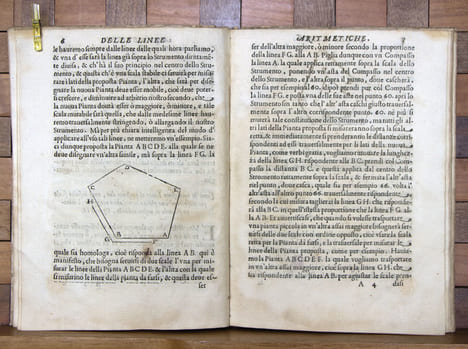 6 DELLE LINEE
le hauremo sempre dalle linee delle quali hora parliamo,
& vna d'esse sarà la linea già sopra lo Strumento diritamente
diuisa, & ch'hà il suo principio nel centro dello Stru-
mento, & questa ch'è vna scala stabile ci seruirà per misu-
rare i lati della proposta Pianta, l'altra, che sarà per dise-
gnare la nuoua Pianta deue esser mobile, cioè deue poter-
si crescere, e diminuire ad arbitrio nostro secondo, che
la nuoua Pianta dourà esser ò maggiore, ò minore, e tale
scala mutabile sarà quella, che dalle medesime linee haue-
remo trasuersalmente, stringendo, ò allargando il nostro
Strumento. Mà per più chiara intelligenza del modo d'
applicare all'vso tali linee, ne metteremo vn'essempio. Sia
ci dunque proposta la Pianta A B C D E. alla quale se ne
deue disegnare vn'altra simile, mà sopra la linea F G. la
D
C
E
H
G
F
B
A
quale sia homologa, cioè risponda alla linea A B. quì è
manifesto, che bisogna seruirsi di due scale l'vna per mi-
surar le linee della Pianta A B C D E. & l'altra con la quale
si misurino le linee della Pianta da farsi, & questa deue es-
ser
ARITMETICHE. 7
ser dell'altra maggiore, ò minore secondo la proportione
della linea F G. alla A B. Piglia dunque con vn Compasso
la linea A B. la quale applica rettamente sopra la scala dello
Strumento, ponendo vn'asta del Compasso nel centro
dello Strumento, e l'altra sopra 'l punto, doue cascherà,
che sia per esempio al 60. dipoi prendi pur col Compasso
la linea F G. e posta delle sue aste nel punto 60. apri lo
Strumento sin tanto che l'altr'asta caschi giusto trasuersal-
mente sopra l'altro corrispondente punto 60. nè più si
muterà tale constitutione dello Strumento, ma tutti gli al-
tri lati della Pianta proposta si misureranno sopra la scala
retta, & immediatamente si prenderanno le distanze corri-
spondenti ad essi trasuersalmente per li lati della nuoua
Pianta, come verbi gratia, vogliamo inuenire la lunghez-
za della linea G H. rispondente alla B C. prendi col Com-
passo la distanza B C. e questa applica dal centro dello
Strumento rettamente sopra la scala, & fermata l'altr'asta
nel punto, doue casca, quale sia per esempio 66. volta l'
altr'asta all'altro punto 66. trasuersalmente rispondente,
secondo la cui misura taglierai la linea G H. che risponde-
rà alla B C. in quest'istessa proportione che la linea F G. al-
la A B. Et auuertiscasi, che quando si volesse trasportare
vna pianta piccola in vn'altra assai maggiore bisognerà
seruirsi delle due scale con ordine opposto, cioè vsare la scala
retta per la Pianta da farsi, e la trasuersale per misurar le
linee della Pianta proposta, come per esempio: Hauiamo
la Pianta A B C D E F. la quale vogliamo trasportare
in vn'altra assai maggiore, cioè sopra la linea G H. che
sia rispondente alla A B. per aggiustare le scale pren-
A 4 dasi